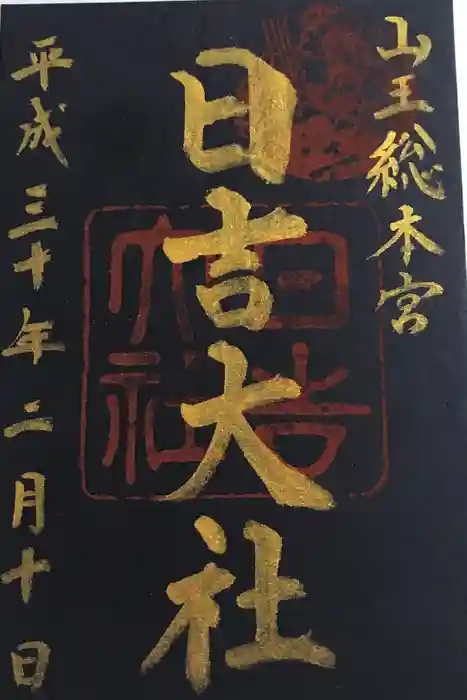 山王総本宮
日吉大社
日吉大社
平成三十年二月十日